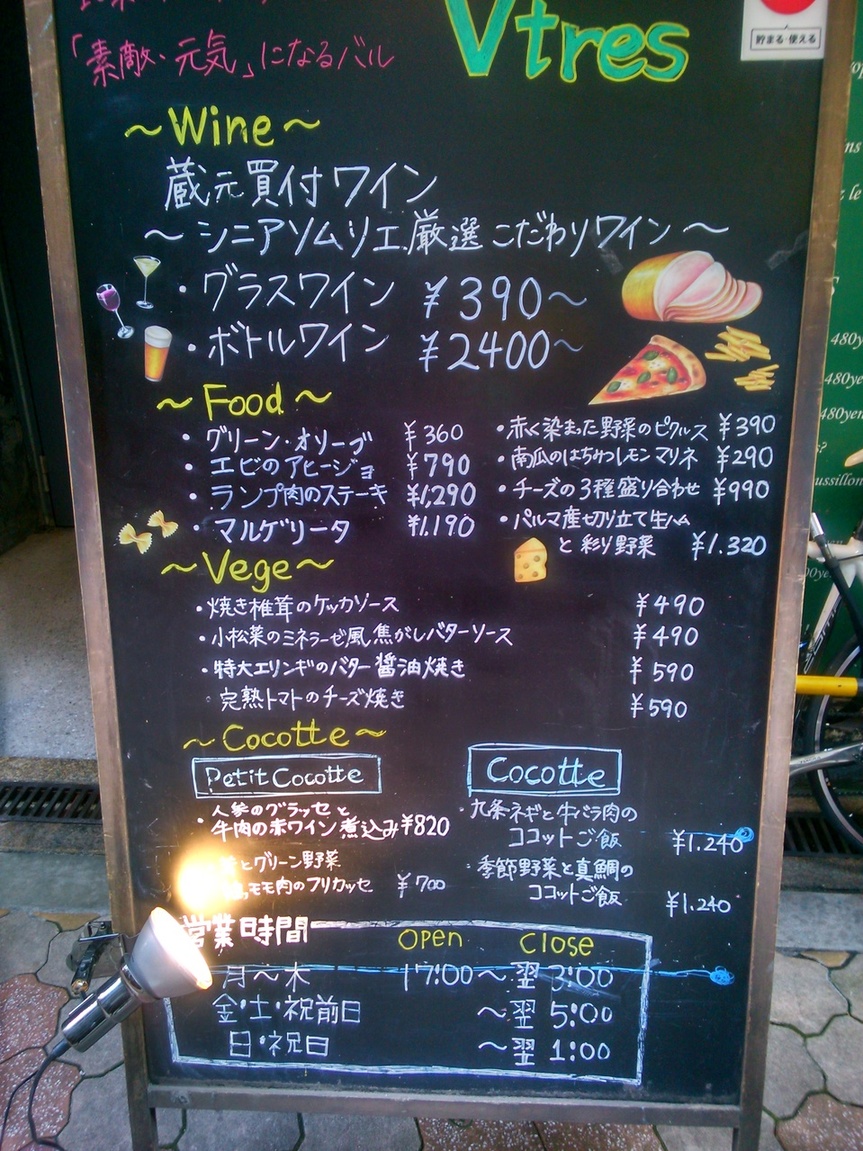 「素敵・元気」になるバル
Vtres
貯まる・使える
~Wine~
蔵元買付ワイン
~シニアソムリエ厳選こだわりワイン~
・グラスワイン ¥390~
・ボトルワイン ¥2400~
~Food~
・グリーン・オリーブ ¥360
・エビのアヒージョ ¥790
・ランプ肉のステーキ ¥1,290
・マルゲリータ ¥1.190
・赤く染まった野菜のピクルス ¥390
・南瓜のはちみつレモンマリネ ¥290
・チーズの3種盛り合わせ ¥990
・パルマ産切り立て生ハム
と彩り野菜 ¥1.320
~Vege~
・焼き椎茸のケッカソース ¥490
・小松菜のミネラーゼ風焦がしバターソース ¥490
・特大エリンギのバター醤油焼き ¥590
・完熟トマトのチーズ焼き ¥590
~Cocotte~
Petit Cocotte
・人参のグラッセと
牛肉の赤ワイン煮込み ¥820
とグリーン野菜
モモ肉のフリカッセ ¥700
Cocotte
・九条ネギと牛バラ肉の
ココットご飯 ¥1.240
・季節野菜と真鯛の
ココットご飯 ¥1.240
営業時間 OPEN Close
月~木 17:00~翌3:00
金・土・祝前日 ~翌5:00
日・祝日 ~翌1:00
480ye
480ye
480ye
ussillon